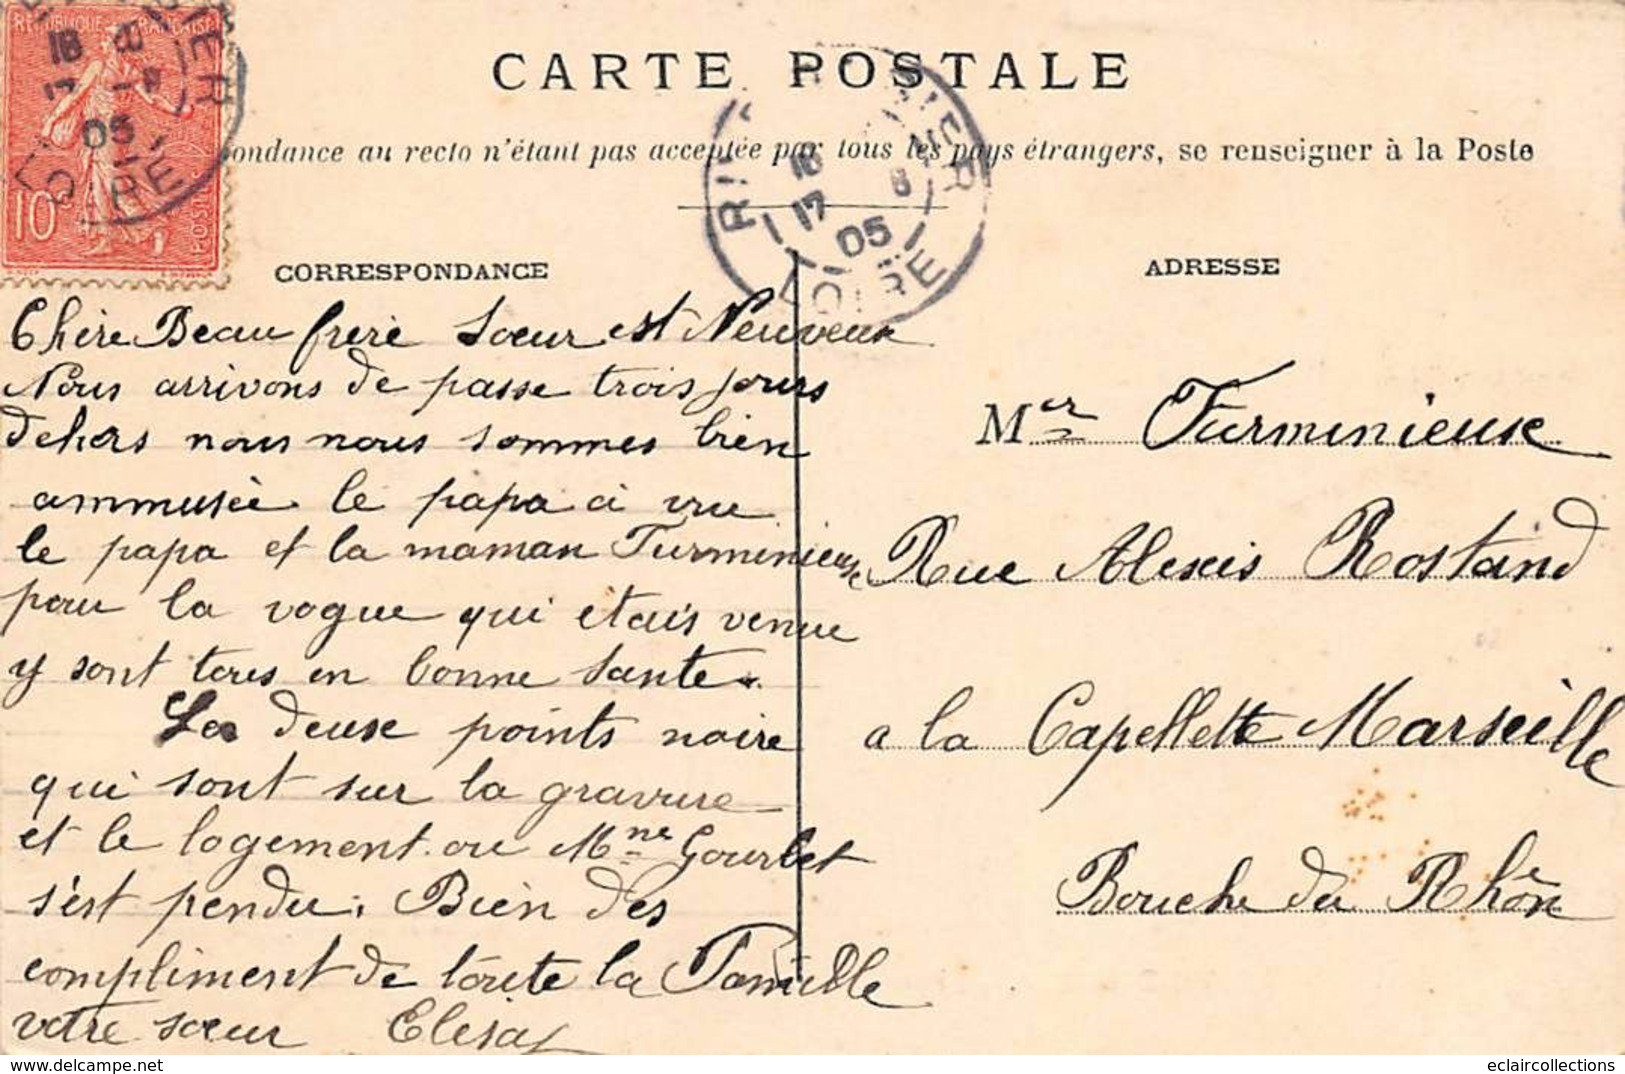 RÉPUBLIQUE FRANÇAISE
10c
POSTES
CARTE POSTALE
ondance au recto n'étant pas acceptée par tous les pays étrangers, se renseigner à la Poste
18
17 8
05
LOIRE
CORRESPONDANCE
ADRESSE
Chère Beau frère Soeur est Neuveux
Nous arrivons de passe trois jours
dehors nous nous sommes bien
ammusée le papa à vue
le papa et la maman Furminieuse
pour la vogue qui étais venue
y sont tous en bonne sante.
Les deux points noire
qui sont sur la gravure
et le logement ou Mme Gourbet
s'est pendu. Bien des
compliment de toute la Famille
votre soeur Elisa
Mer Furminieuse
Rue Alexis Rostand
a la Capellette Marseille
Bouche du Rhône
eclaircollections